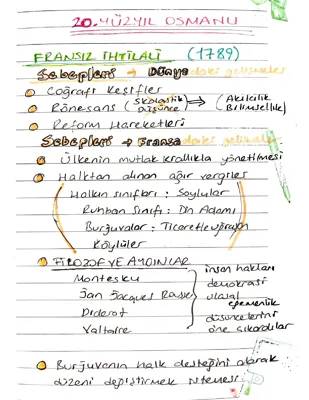 20. YÜZYIL OSMANLI
FRANSIZ İHTİLALİ (1789)
Sebepleri → Dünyadaki gelişmeler
Coğrafi Keşifler
Rönesans (Skolastik düşünce) → (Akılcılık Bilimsellik)
Reform Hareketleri
Sebepleri → Fransadaki gelişmeler
Ülkenin mutlak krallıkla yönetilmesi
Halktan alınan ağır vergiler
Halkın sınıfları : Soylular
Ruhban Sınıfı : Din Adamı
Burjuvalar : Ticaretle uğraşan
Köylüler
FİLOZOF VE AYDINLAR
Montesku
Jan Jacques Russo
Diderot
Valtaire
insan hakları
demokrasi
ulusal
egemenlik
düşüncelerini
öne sürdüler
Burjuvanın halk desteğini alarak
düzeni değiştirmek istemesi